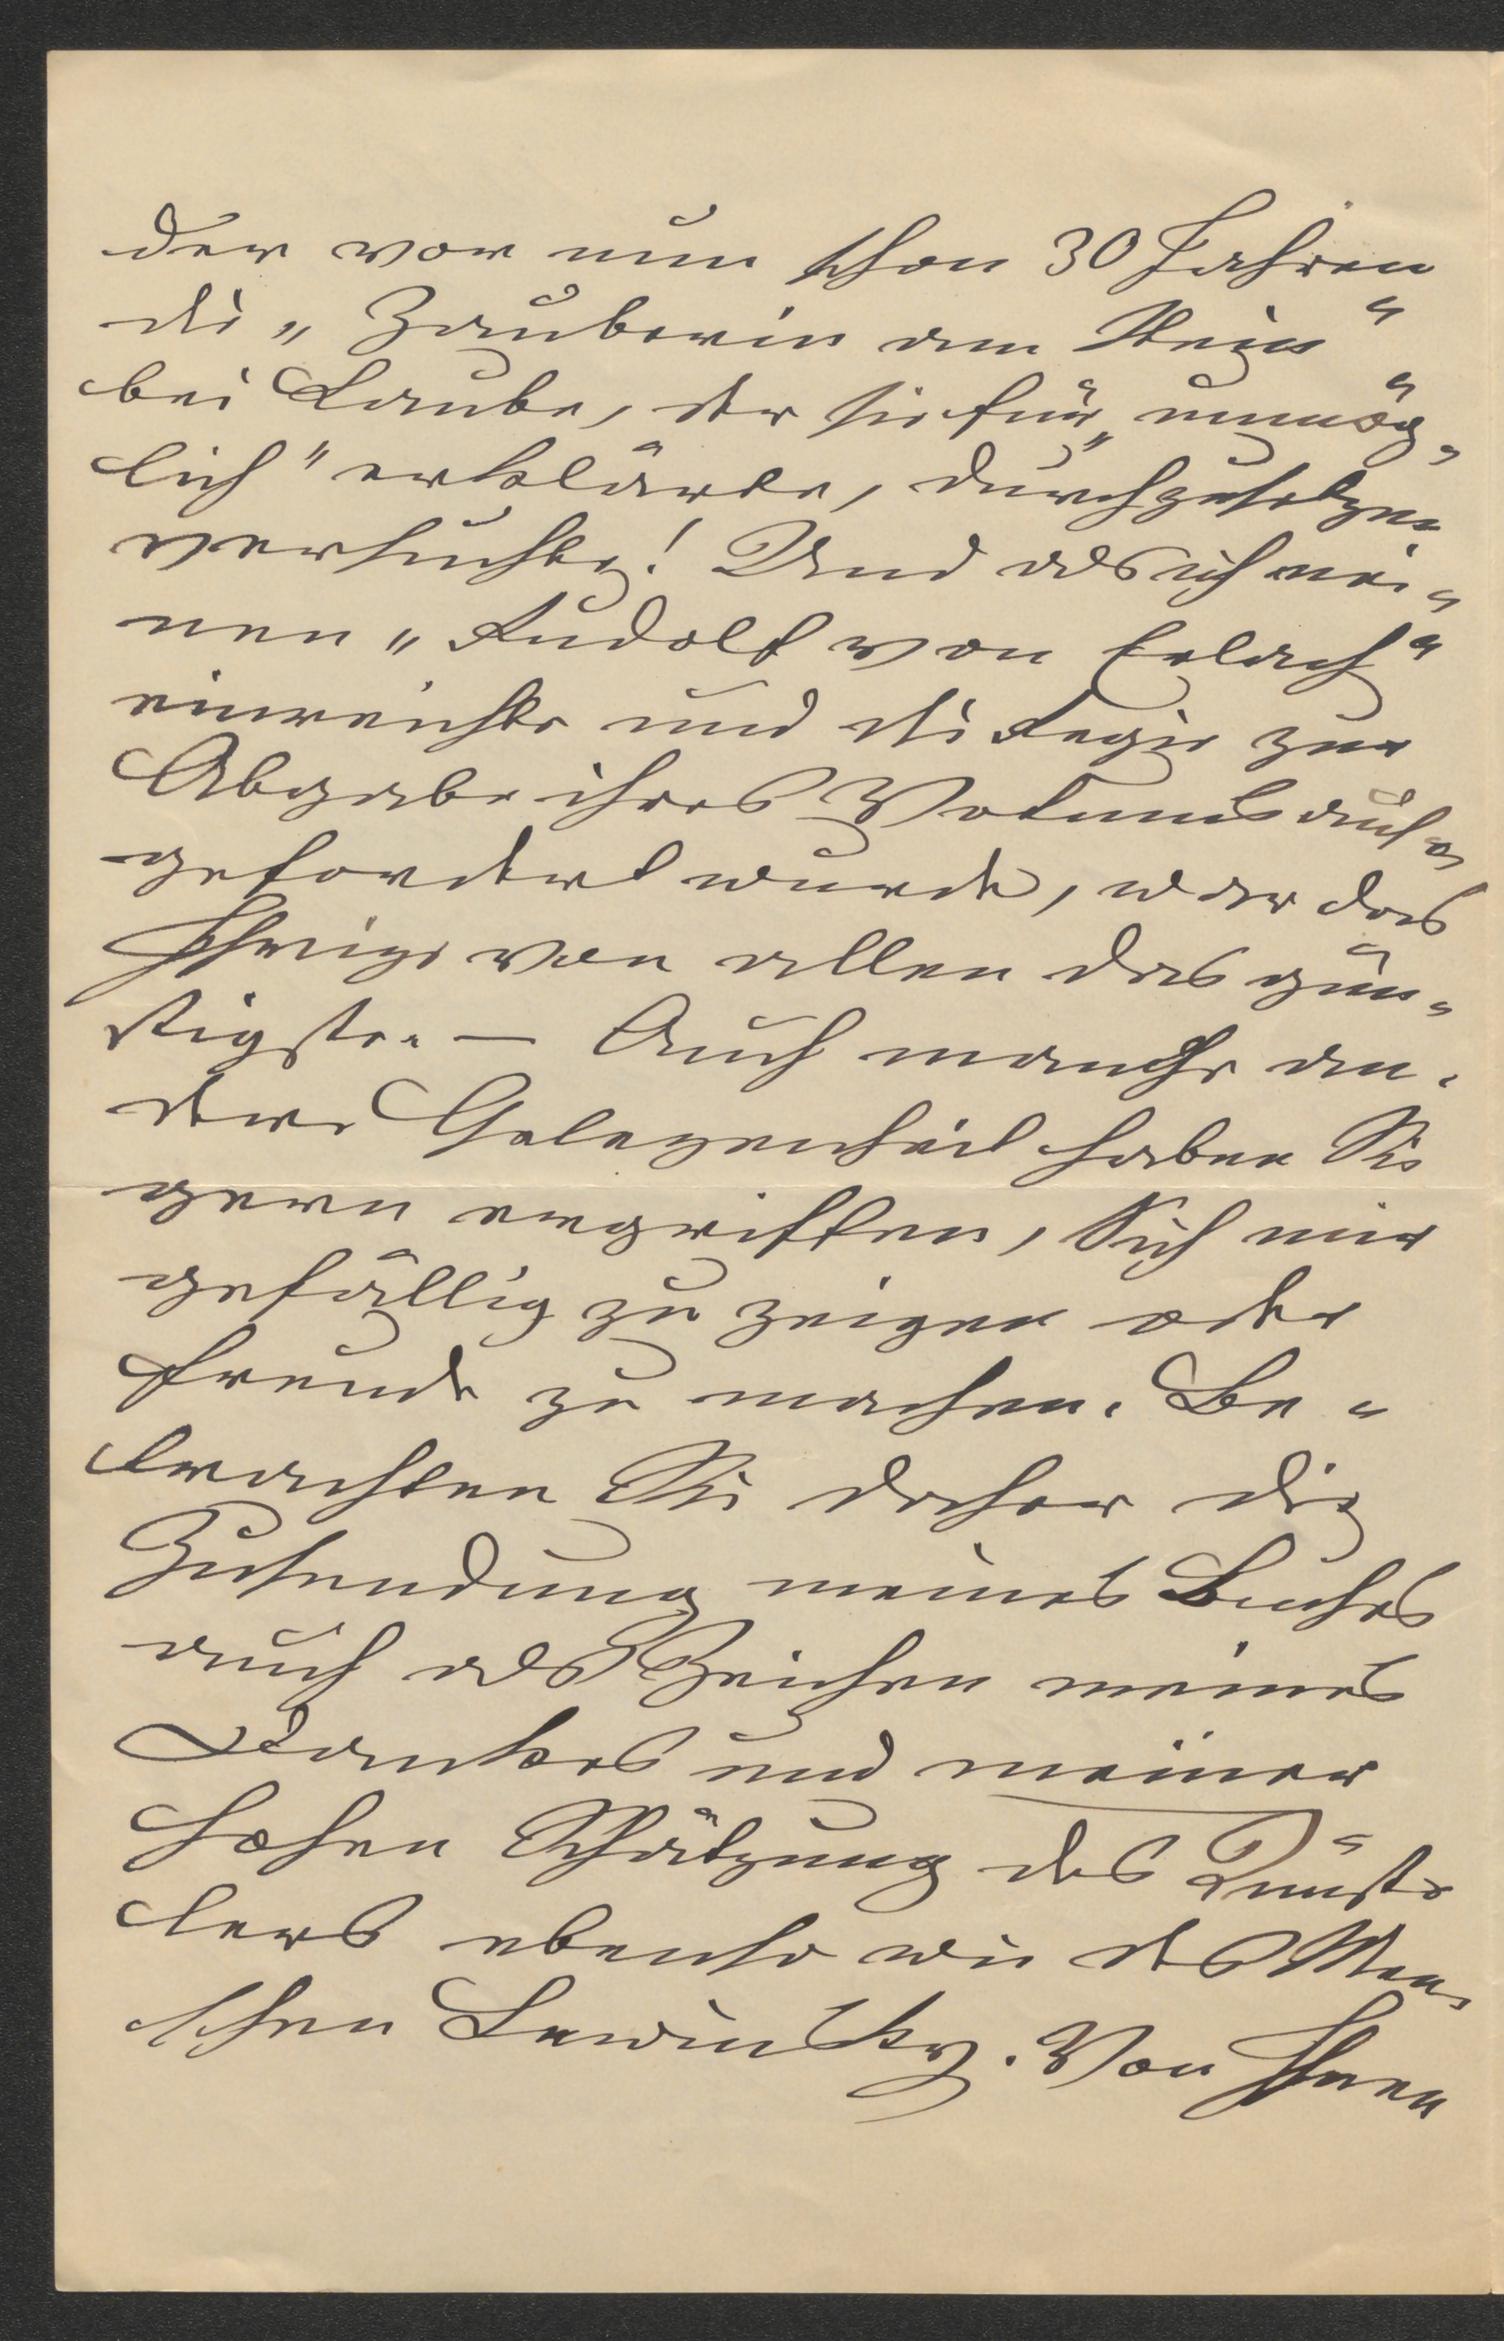 der vor nun schon 30 Jahren
die „Zauberin am Stein“
bei Laube, der sie für „unmög-
lich“ erklärte, durchzusetzen
versuchte! Und als ich mei-
nen „Rudolf von Erlach“
einreichte und die Regie zur
Abgabe ihres Votums auf-
gefordert wurde, war das
Ihrige von allen das güns-
tigste. — Auch manche an-
dere Gelegenheit haben Sie
gern ergriffen, Sich mir
gefällig zu zeigen oder
Freude zu machen. Be-
trachten Sie daher die
Zusendung meines Buches
auch als Zeichen meines
Dankes und meiner
hohen Schätzung des Künst-
lers ebenso wie des Men-
schen Lewinsky. Von Ihnen